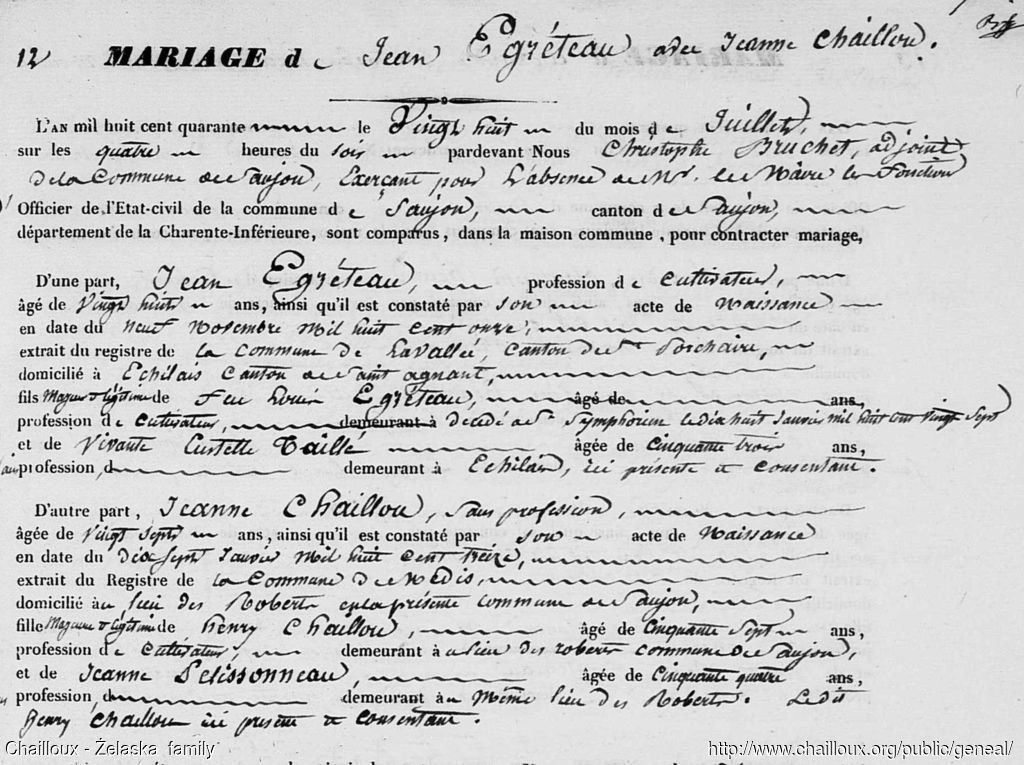 12 MARIAGE de Jean Egréteau avec Jeanne Chaillou.
L'AN mil huit cent quarante le Vingt huit du mois de Juillet,
sur les quatre heures du soir pardevant Nous Christophe Bruchet, adjoint
De la Commune de Saujon, Exerçant pour L'absence de Mr. le Maire les Fonctions
Officier de l'Etat-civil de la commune de Saujon, canton de Saujon,
département de la Charente-Inférieure, sont comparus, dans la maison commune, pour contracter mariage,
D'une part, Jean Egréteau, profession de Cultivateur,
âgé de Vingt huit ans, ainsi qu'il est constaté par son acte de Naissance
en date du Neuf Novembre Mil huit Cent onze,
extrait du registre de la Commune de Lavallée, Canton de St Porchaire,
domicilié à Echilais Canton de Saint agnant,
fils Majeur & légitime de Feu Louis Egréteau, âgé de ans,
profession de Cultivateur, demeurant à décédé à St Symphorien le dix huit Janvier mil huit cent vingt Sept
et de Vivante Taillé âgée de Cinquante trois ans,
profession d demeurant à Echilais, ici présente et consentante.
D'autre part, Jeanne Chaillou, Sans profession,
âgée de Vingt Sept ans, ainsi qu'il est constaté par son acte de Naissance
en date du Dix Sept Janvier Mil huit Cent treize,
extrait du Registre de la Commune de Médis,
domicilié au lieu des Roberts en la présente commune de Saujon,
fille Majeure & légitime de henry Chaillou, âgé de Cinquante Sept ans,
profession de Cultivateur, demeurant à au lieu des roberts commune de Saujon,
et de Jeanne Pelissonneau, âgée de Cinquante quatre ans,
profession d demeurant au Même lieu des Roberts. Ledit
henry Chaillou ici présent et consentant.
Chailloux - Żelaska family http://www.chailloux.org/public/geneal/